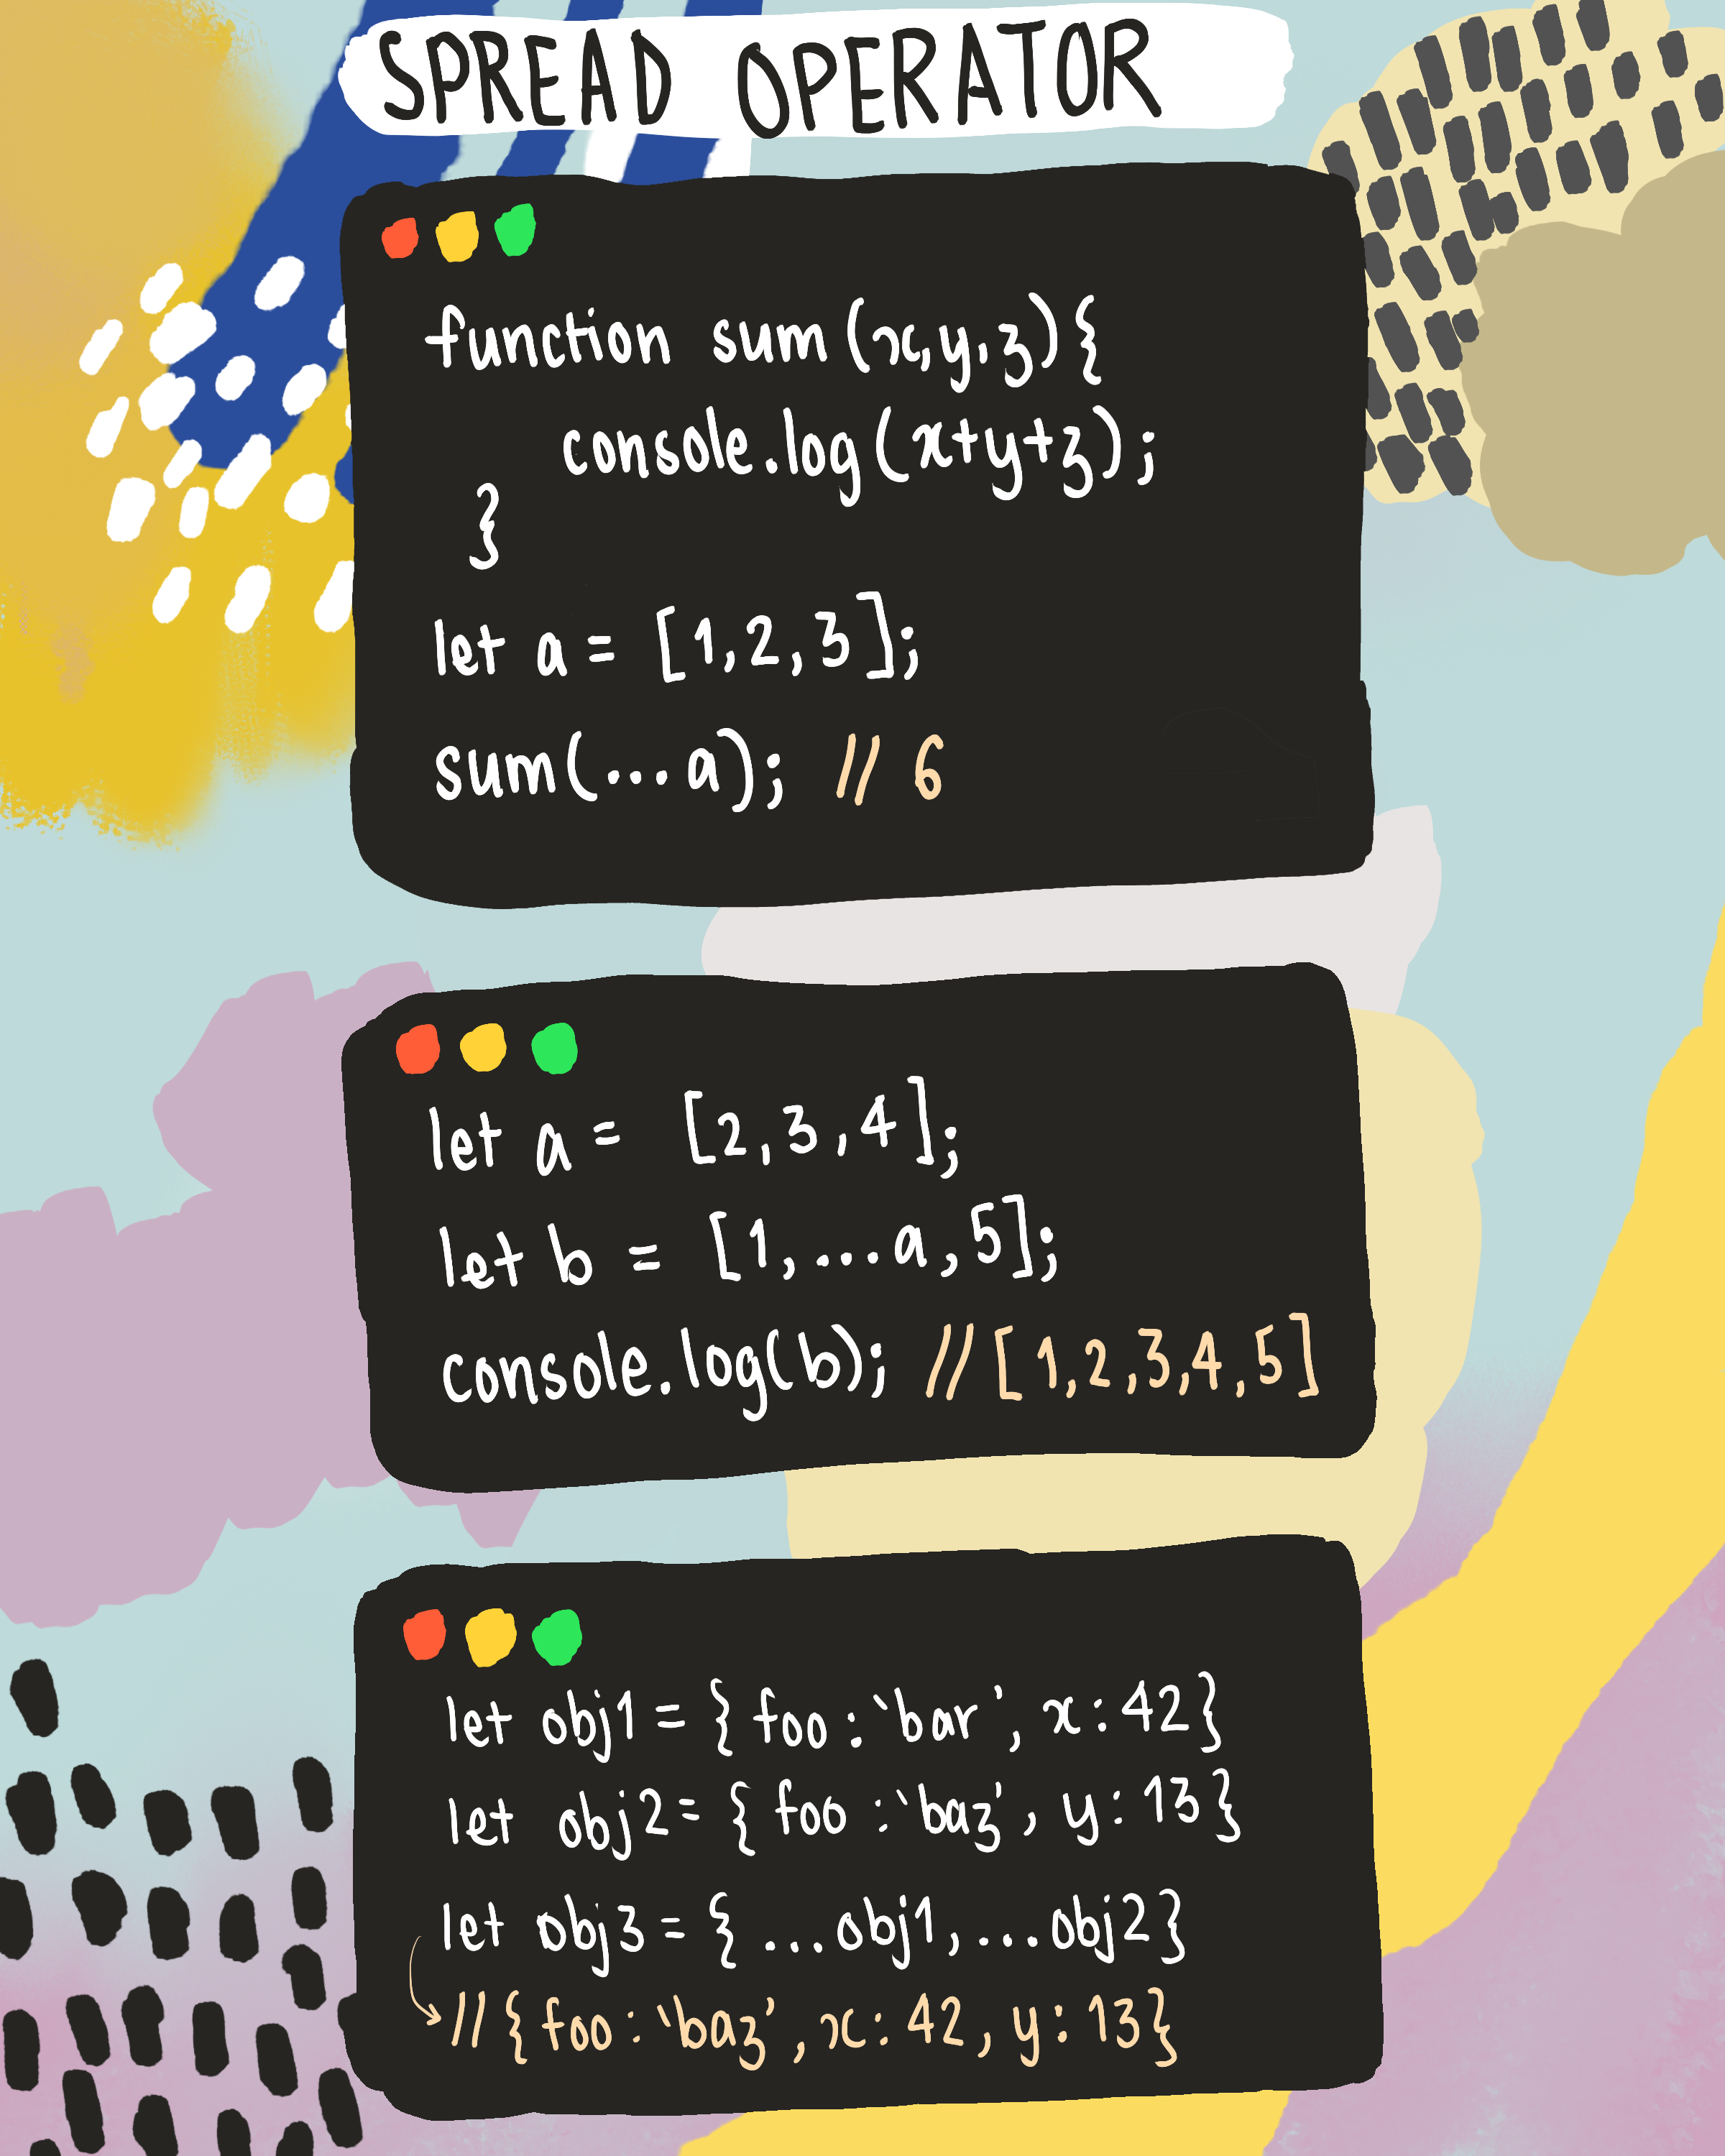 SPREAD OPERATOR
function sum (x,y,z) {
console.log (x+y+z);
}
let a = [1,2,3];
sum(...a); // 6
let a = [2,3,4];
let b = [1,...a,5];
console.log(b); // [1,2,3,4,5]
let obj1 = { foo : 'bar', x : 42}
let obj2 = { foo : 'baz', y : 13 }
let obj3 = { ...obj1, ...obj2}
// { foo : 'baz', x : 42, y : 13}